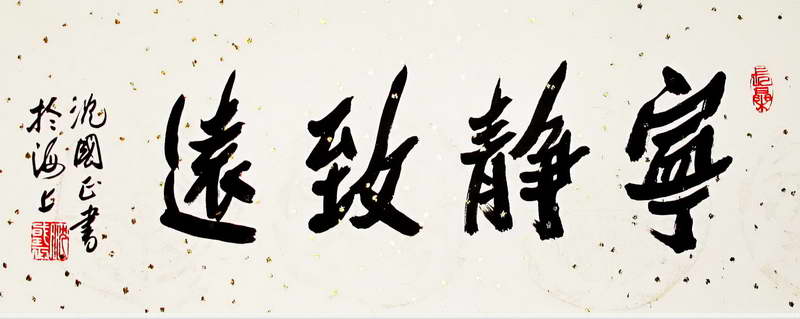 寧靜致遠
沈國正書
於海上